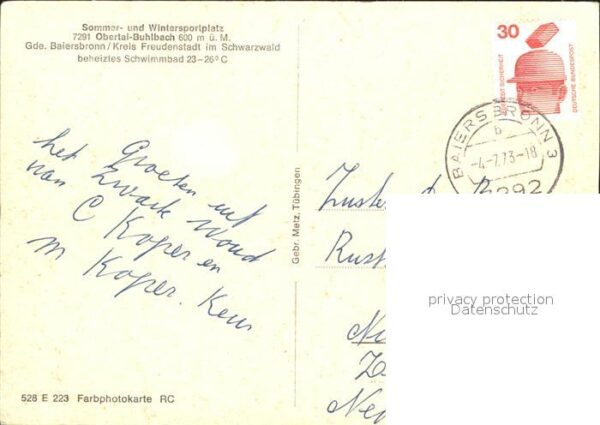 Sommer- und Wintersportplatz
7291 Obertal-Buhlbach 600 m ü. M.
Gde. Baiersbronn/Kreis Freudenstadt im Schwarzwald
beheiztes Schwimmbad 23–26° C
30
DEUTSCHE BUNDESPOST
BAIERSBRONN 3
b
-4.-7.73-18
7292
Groeten uit
het zwarte woud
van
C Koper en
M Koper.
Gebr. Metz, Tübingen
Zuster
Rust
privacy protection
Datenschutz
528 E 223 Farbphotokarte RC